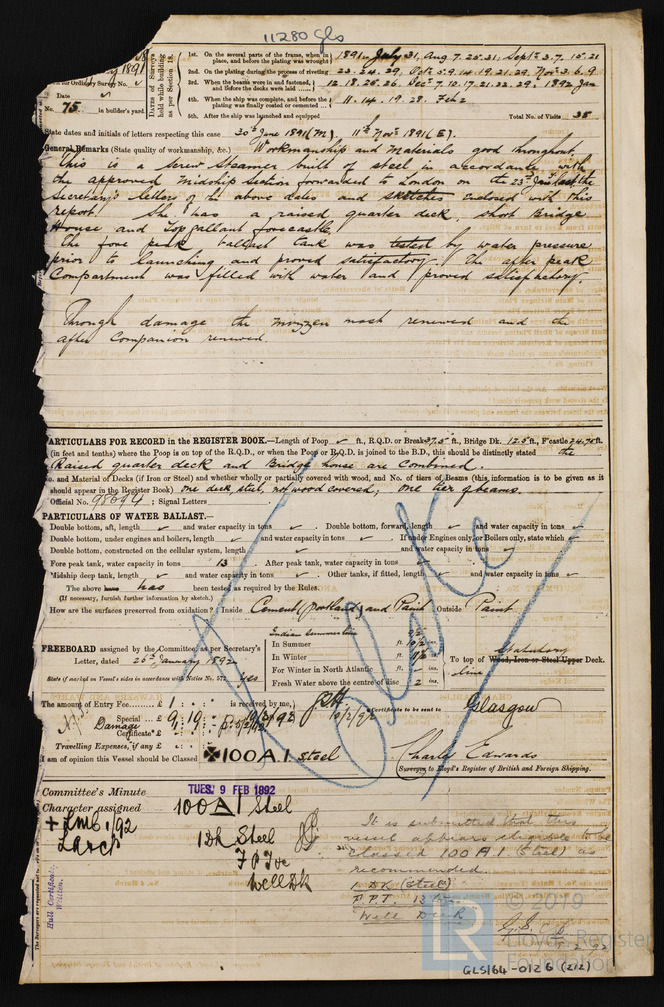 11280 Gls
1st. On the several parts of the frame, when in place, and before the plating was wrought 1891 July 31, Aug 7. 20. 21, Sept 3. 7. 15. 21
2nd. On the plating during the process of riveting 22. 24. 29, Oct 5. 9. 14. 19. 21. 29, Nov 3. 6. 9
3rd. When the beams were in and fastened, and before the decks were laid 12. 18. 25. 26. Dec 7. 10. 17. 21. 22. 29. 1892 Jan
4th. When the ship was complete, and before the plating was finally coated or cemented 11. 14. 19. 28. Feb 2
5th. After the ship was launched and equipped Total No. of Visits 38
Dates of Surveys held while building as per Section 18.
Date
No. 75 in builder's yard.
State dates and initials of letters respecting this case 30th June 1891 (M) 11th Nov 1891 (E).
General Remarks (State quality of workmanship, &c.) Workmanship and Materials good throughout.
This is a screw Steamer built of steel in accordance with
the approved Midship Section forwarded to London on the 23rd Jan last, the
Secretary's letters of the above dates and sketches enclosed with this
report. She has a raised quarter deck, short Bridge
House and Top gallant forecastle.
The fore peak ballast tank was tested by water pressure
prior to launching and proved satisfactory. The after peak
Compartment was filled with water and proved satisfactory.
Through damage the mizzen mast renewed and the
after Companion renewed
PARTICULARS FOR RECORD in the REGISTER BOOK.—Length of Poop ✓ ft., R.Q.D. or Break 37.5 ft., Bridge Dk. 12.5 ft., F'castle 24.75 ft.
(in feet and tenths) where the Poop is on top of the R.Q.D., or when the Poop or R.Q.D. is joined to the B.D., this should be distinctly stated the
Raised quarter deck and Bridge house are combined.
o. and Material of Decks (if Iron or Steel) and whether wholly or partially covered with wood, and No. of tiers of Beams (this information is to be given as it
should appear in the Register Book) one deck, steel, not wood covered, one tier of beams.
Official No. 98694 ; Signal Letters
PARTICULARS OF WATER BALLAST.—
Double bottom, aft, length ✓ and water capacity in tons ✓ . Double bottom, forward, length ✓ and water capacity in tons ✓
Double bottom, under engines and boilers, length ✓ and water capacity in tons ✓ . If under Engines only, or Boilers only, state which ✓
Double bottom, constructed on the cellular system, length ✓ and water capacity in tons ✓
Fore peak tank, water capacity in tons 13 . After peak tank, water capacity in tons ✓
Midship deep tank, length ✓ and water capacity in tons ✓ . Other tanks, if fitted, length ✓ and water capacity in tons ✓
The above has been tested as required by the Rules.
(If necessary, furnish further information by sketch.)
How are the surfaces preserved from oxidation? Inside Cement (Portland) and Paint Outside Paint
FREEBOARD assigned by the Committee, as per Secretary's
Letter, dated 26th January 1892
State if marked on Vessel's sides in accordance with Notice No. 571. yes
Indian Summer time
In Summer ft. ins.
In Winter ft. ins.
For Winter in North Atlantic ft. ✓ ins.
Fresh Water above the centre of disc 2 ins.
To top of Wood, Iron or Steel Upper Deck.
Statutory line
The amount of Entry Fee £ 1 : : is received by me,
Special £ 9 : 19 :
Damage
Certificate
Travelling Expenses, if any £
10/2/92
Certificate to be sent to Glasgow
I am of opinion this Vessel should be Classed ✠100A.1. steel
Charles Edwards
Surveyor to Lloyd's Register of British and Foreign Shipping.
Committee's Minute TUES. 9 FEB 1892
Character assigned 100 A1 Steel
+LMC 1/92
1 Dk Steel
Well Dk
It is submitted that this
vessel appears eligible to be
classed 100 A.1 (Steel) as
recommended.
1 DK (Steel)
F.P.T. 13
Well Deck
Hull Certificate Written.
© 2019
LR Lloyd's Register Foundation
GLS164-0126 (2/2)